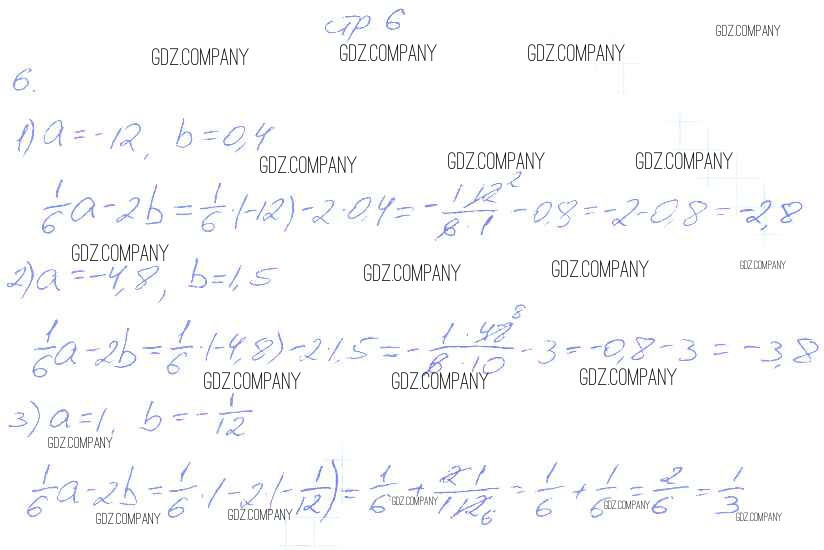 стр 6
GDZ.COMPANY GDZ.COMPANY GDZ.COMPANY GDZ.COMPANY
6.
1) a = -12, b = 0,4
GDZ.COMPANY GDZ.COMPANY GDZ.COMPANY
1/6 a - 2b = 1/6 · (-12) - 2 · 0,4 = - 1 12 2 / 6 · 1 - 0,8 = -2 - 0,8 = -2,8
GDZ.COMPANY GDZ.COMPANY GDZ.COMPANY GDZ.COMPANY
2) a = -4,8, b = 1,5
1/6 a - 2b = 1/6 · (-4,8) - 2 · 1,5 = - 1 · 48 8 / 6 · 10 - 3 = -0,8 - 3 = -3,8
GDZ.COMPANY GDZ.COMPANY GDZ.COMPANY
3) a = 1, b = - 1/12
GDZ.COMPANY
1/6 a - 2b = 1/6 · 1 - 2 · (- 1/12) = 1/6 + 2 1 / 1 12 6 = 1/6 + 1/6 = 2/6 = 1/3
GDZ.COMPANY GDZ.COMPANY GDZ.COMPANY GDZ.COMPANY GDZ.COMPANY